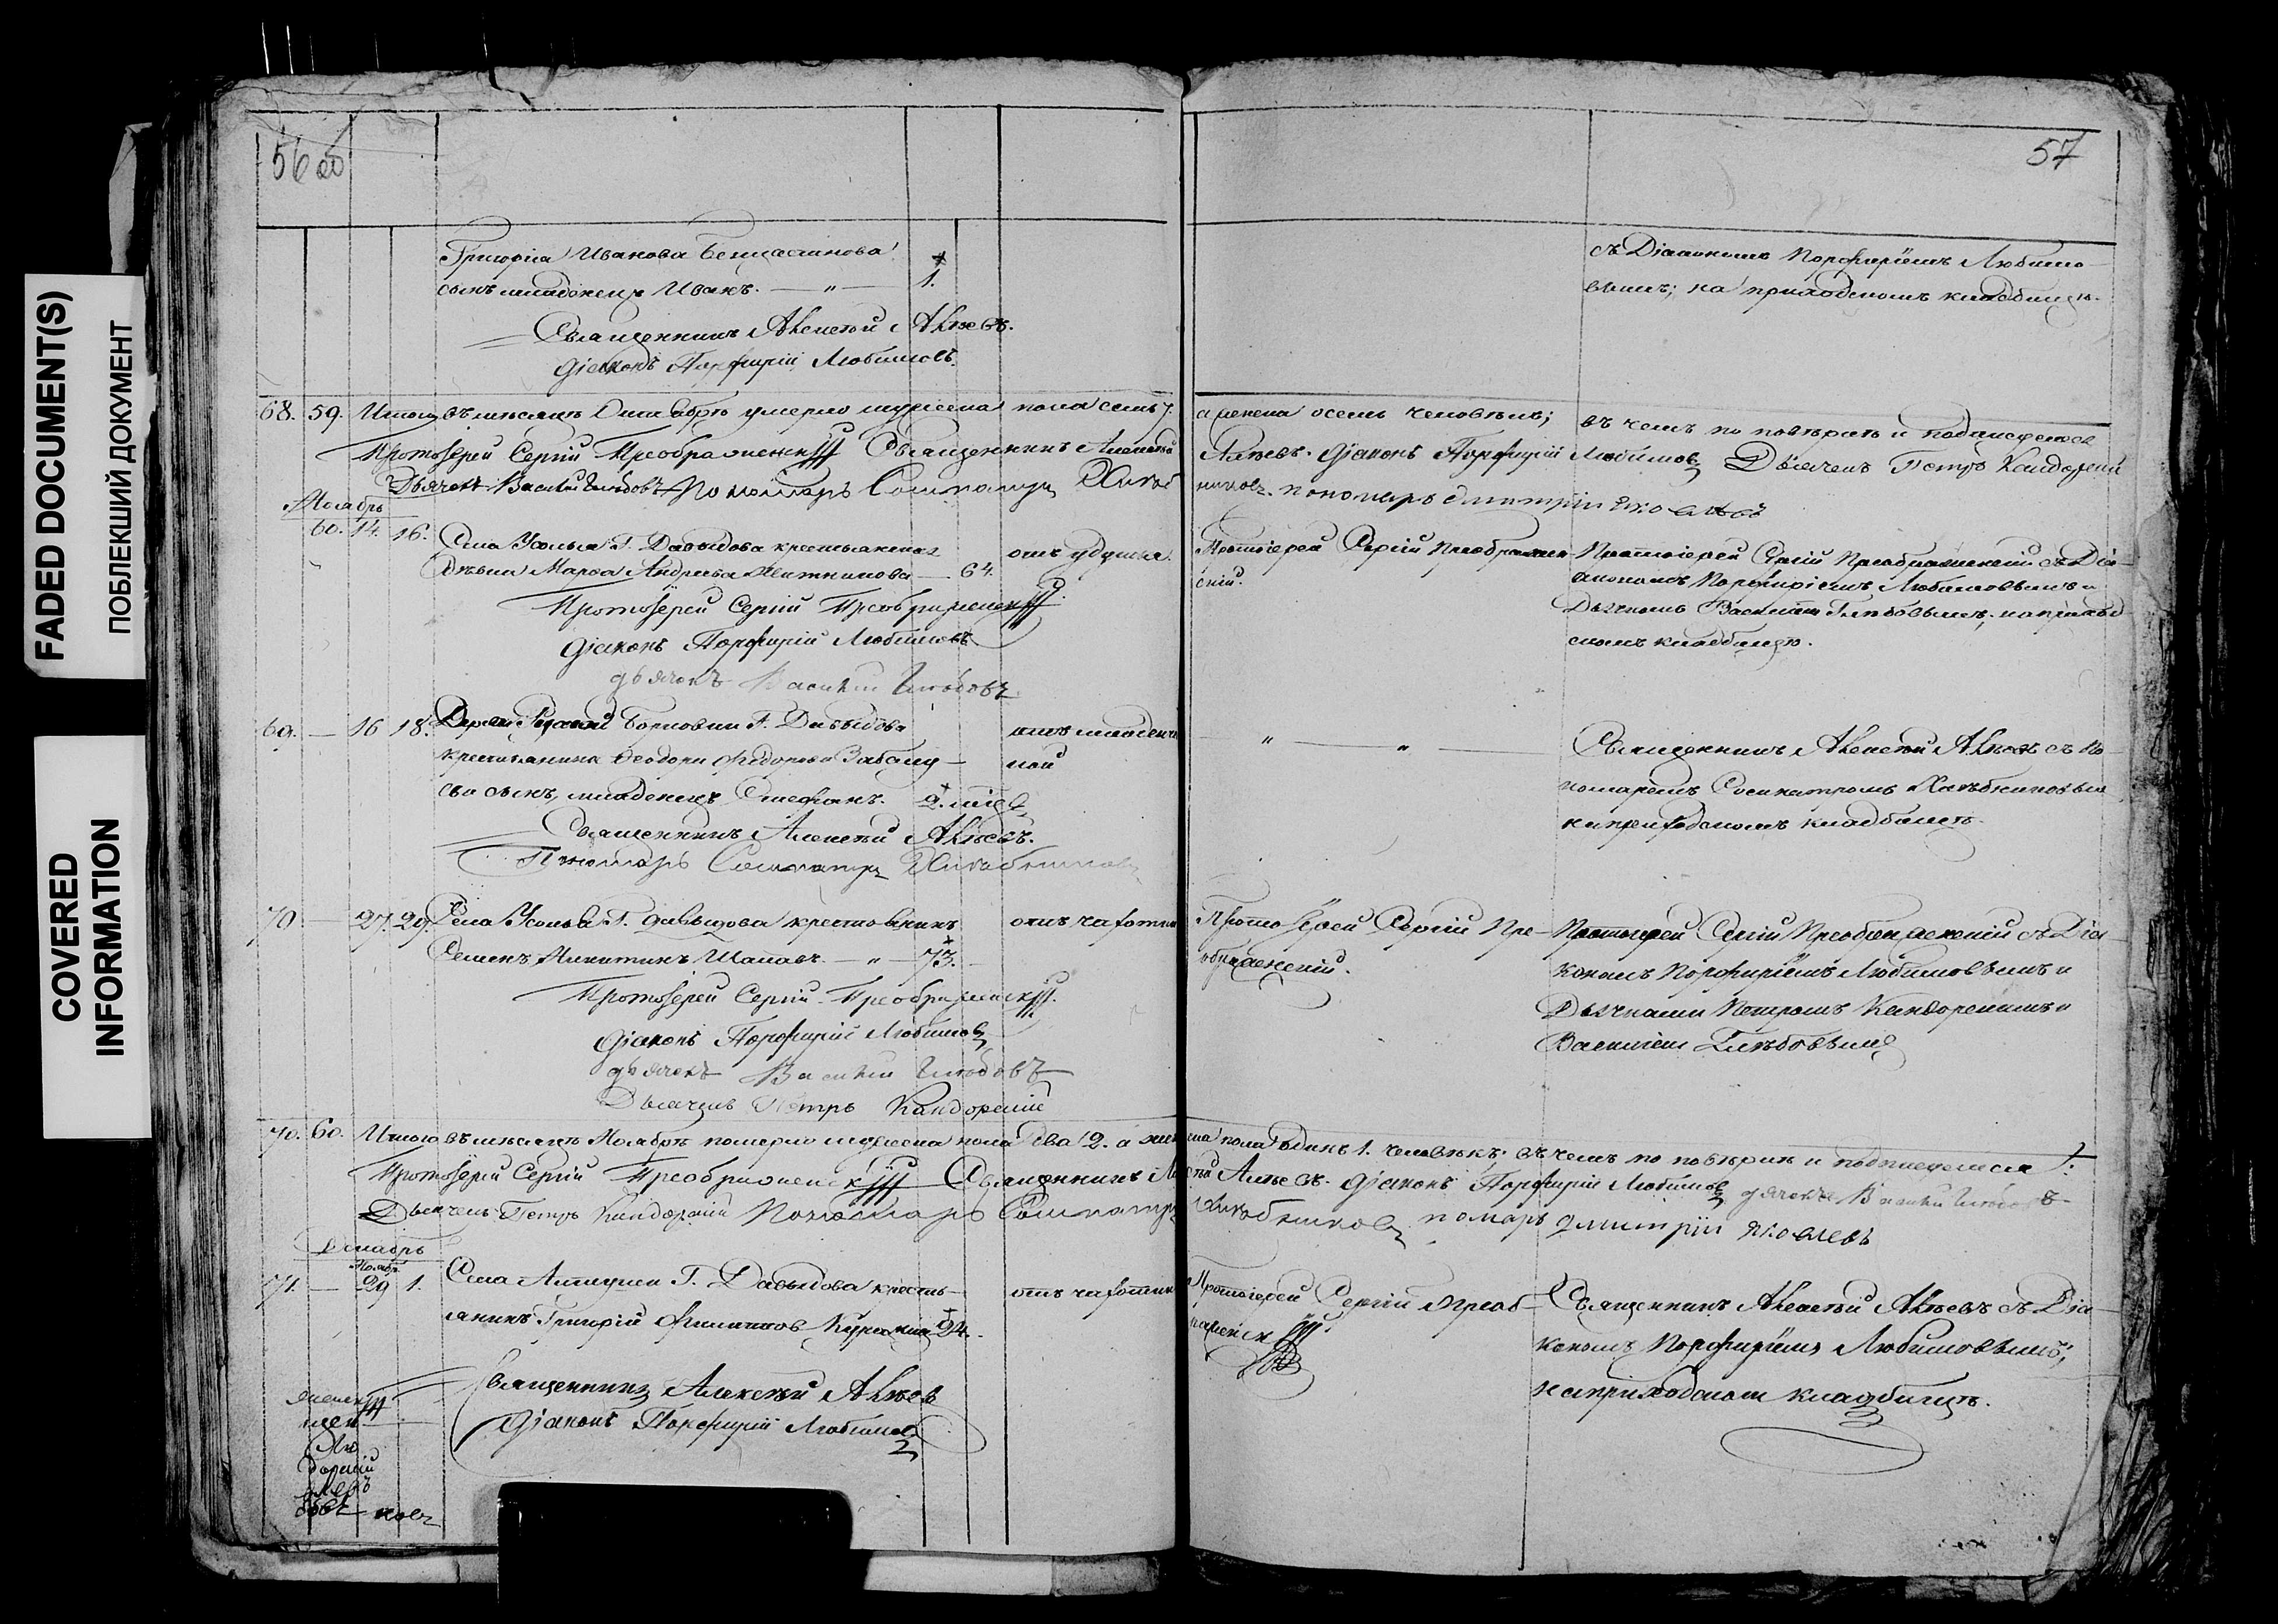 FADED DOCUMENT(S)
ПОБЛЕКШИЙ ДОКУМЕНТ
COVERED
INFORMATION
56 об
Григорія Иванова
сынъ младенецъ Иванъ. — " — 1.
Священникъ Алексѣй
діаконъ Порфирій Любимовъ.
68. 59. Итого въ мѣсяцѣ Октябрѣ умерло мужеска пола семь 7.
Протоіерей Сергій Преображенскій Священникъ Алексѣй
Дьячекъ Василій Глѣбовъ Пономарь Сосипатръ
Ноябрь
60. 14. 16. Села Усолья Г. Давыдова крестьянская отъ удушья.
дѣвка Марѳа Андреева — 64.
Протоіерей Сергій Преображенскій
діаконъ Порфирій Любимовъ
дьячекъ Василій Глѣбовъ
69. — 16 18. Г. Давыдова отъ младенче
крестьянина Ѳеодора Федорова ской
сынъ, младенецъ Стефанъ. 2.
Священникъ Алексѣй
Пономарь Сосипатръ Хлѣбниковъ
70 — 27. 29. Села Усолья Г. Давыдова крестьянинъ отъ чахотки
Семенъ Никитинъ — " — 73.
Протоіерей Сергій Преображенскій.
діаконъ Порфирій Любимовъ
дьячекъ Василій Глѣбовъ
Дьячекъ Петръ Кандорскій
70. 60. Итого въ мѣсяцѣ Ноябрѣ померло мужеска пола два 2. а жен
Протоіерей Сергій Преображенскій Священникъ
Дьячекъ Петръ Кандорскій Пономарь Сосипатръ
Декабрь
Ноябр.
71. — 29 1. Села Г. Давыдова кресть- отъ чахотки
янинъ Григорій Филиппов 94.
Священникъ Алексѣй
діаконъ Порфирій Любимовъ
57
съ Діакономъ Порфиріемъ Любимо-
вымъ; на приходскомъ кладбищѣ.
а женска осемь человѣкъ; въ чемъ по повѣркѣ и подписуемся
діаконъ Порфирій Любимовъ Дьячекъ Петръ Кандорскій
никовъ. пономарь дмитрій яковлевъ
Протоіерей Сергій Преображен- Протоіерей Сергій Преображенскій съ Діа-
скій. кономъ Порфиріемъ Любимовымъ и
Дьячкомъ Василіемъ Глѣбовымъ; на приход-
скомъ кладбищѣ.
" — " — Священникъ Алексѣй съ По-
номаремъ Сосипатромъ Хлѣбниковым
на приходскомъ кладбищѣ.
Протоіерей Сергій Пре- Протоіерей Сергій Преображенскій съ Діа-
ображенскій. кономъ Порфиріемъ Любимовымъ и
Дьячками Петромъ Кандорскимъ и
Василіемъ Глѣбовымъ
ска пола одинъ 1. человѣкъ; въ чемъ по повѣркѣ и подписуемся
діаконъ Порфирій Любимовъ дьячекъ Василій Глѣбовъ
Хлѣбниковъ помарь дмитрій яковлевъ
Протоіерей Сергій Преоб- Священникъ Алексѣй съ Діа-
раженскій. кономъ Порфиріемъ Любимовымъ;
на приходском кладбищѣ.